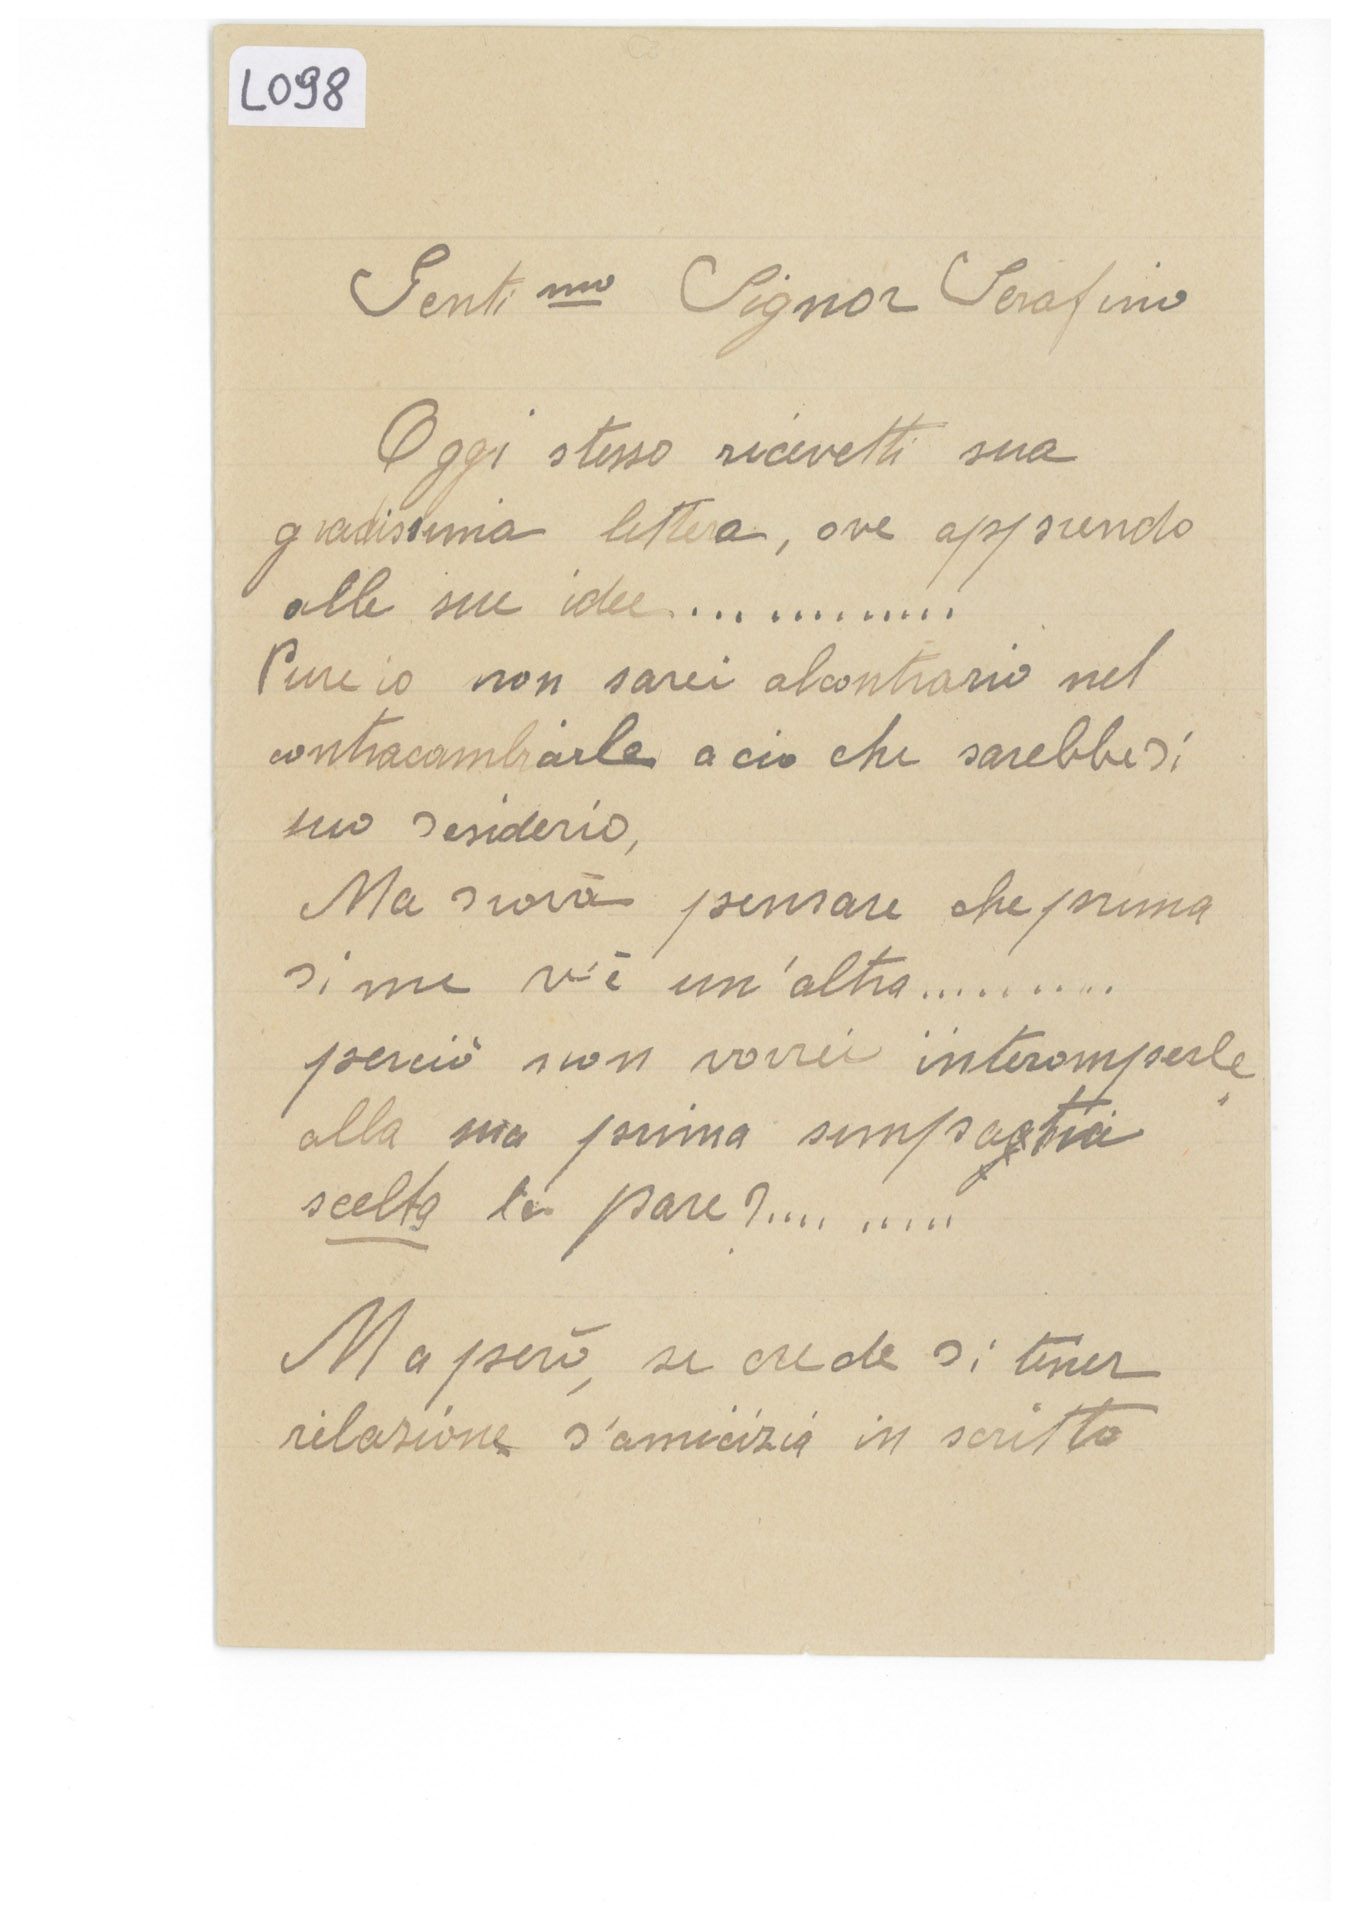 L098
Genti mo Signor Serafino
Oggi stesso ricevetti sua
gradissima lettera, ove apprendo
alle sue idee..............
Pure io non sarei alcontrario nel
contracambiarle a cio che sarebbe di
suo desiderio,
Ma dovrà pensare che prima
di me v'è un'altra..........
perciò non vorrei interomperle
alla sua prima simpatia
scelta le pare?.... .....
Ma però, se crede di tener
relazione d'amicizia in scritto